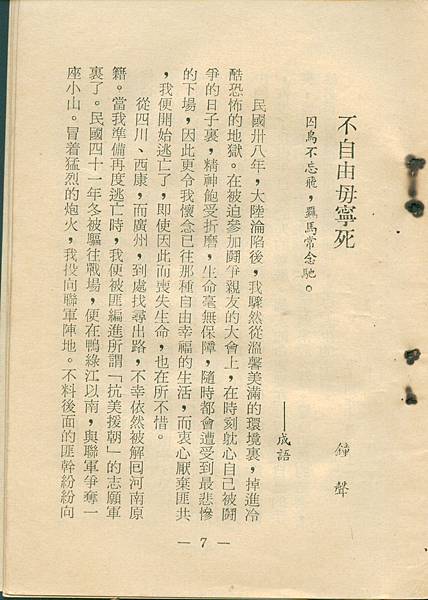 不自由毋寧死
鐘聲
囚鳥不忘飛，羈馬常念馳。
——成語
民國卅八年，大陸淪陷後，我驟然從溫馨美滿的環境裏，掉進冷
酷恐怖的地獄。在被迫參加鬪爭親友的大會上，在時刻躭心自己被鬪
爭的日子裏，精神飽受折磨，生命毫無保障，隨時都會遭受到最悲慘
的下場，因此更令我懷念已往那種自由幸福的生活，而衷心厭棄匪共
，我便開始逃亡了，即使因此而喪失生命，也在所不惜。
從四川、西康，而廣州，到處找尋出路，不幸依然被解囘河南原
籍。當我準備再度逃亡時，我便被匪編進所謂「抗美援朝」的志願軍
裏了。民國四十一年冬被驅往戰場，便在鴨綠江以南，與聯軍爭奪一
座小山。冒着猛烈的炮火，我投向聯軍陣地。不料後面的匪幹紛紛向
— 7 —